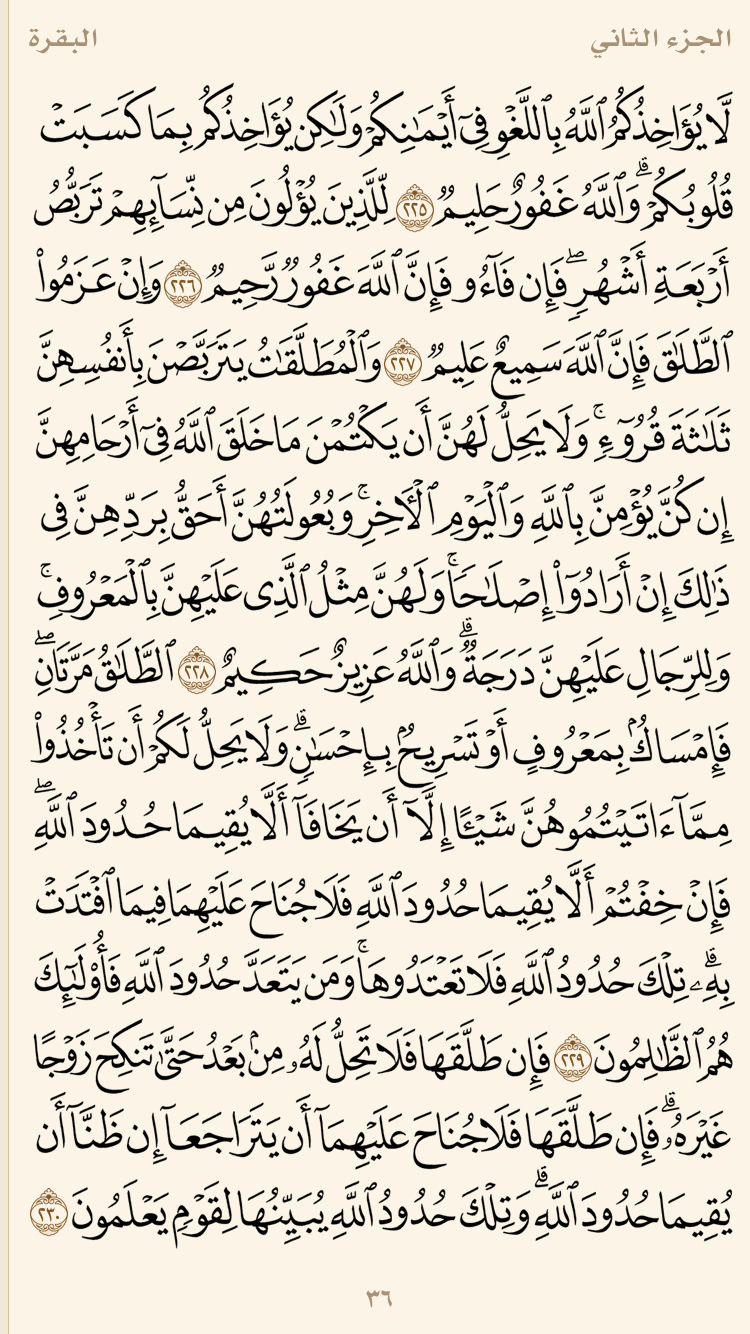 الجزء الثاني
البقرة
لَّا يُؤَاخِذُكُمُ ٱللَّهُ بِٱللَّغْوِ فِىٓ أَيْمَـٰنِكُمْ وَلَـٰكِن يُؤَاخِذُكُم بِمَا كَسَبَتْ
قُلُوبُكُمْ ۗ وَٱللَّهُ غَفُورٌ حَلِيمٌ ٢٢٥ لِّلَّذِينَ يُؤْلُونَ مِن نِّسَآئِهِمْ تَرَبُّصُ
أَرْبَعَةِ أَشْهُرٍ ۖ فَإِن فَآءُو فَإِنَّ ٱللَّهَ غَفُورٌ رَّحِيمٌ ٢٢٦ وَإِنْ عَزَمُوا۟
ٱلطَّلَـٰقَ فَإِنَّ ٱللَّهَ سَمِيعٌ عَلِيمٌ ٢٢٧ وَٱلْمُطَلَّقَـٰتُ يَتَرَبَّصْنَ بِأَنفُسِهِنَّ
ثَلَـٰثَةَ قُرُوٓءٍ ۚ وَلَا يَحِلُّ لَهُنَّ أَن يَكْتُمْنَ مَا خَلَقَ ٱللَّهُ فِىٓ أَرْحَامِهِنَّ
إِن كُنَّ يُؤْمِنَّ بِٱللَّهِ وَٱلْيَوْمِ ٱلْـَٔاخِرِ ۚ وَبُعُولَتُهُنَّ أَحَقُّ بِرَدِّهِنَّ فِى
ذَٰلِكَ إِنْ أَرَادُوٓا۟ إِصْلَـٰحًا ۚ وَلَهُنَّ مِثْلُ ٱلَّذِى عَلَيْهِنَّ بِٱلْمَعْرُوفِ ۚ
وَلِلرِّجَالِ عَلَيْهِنَّ دَرَجَةٌ ۗ وَٱللَّهُ عَزِيزٌ حَكِيمٌ ٢٢٨ ٱلطَّلَـٰقُ مَرَّتَانِ ۖ
فَإِمْسَاكٌۢ بِمَعْرُوفٍ أَوْ تَسْرِيحٌۢ بِإِحْسَـٰنٍ ۗ وَلَا يَحِلُّ لَكُمْ أَن تَأْخُذُوا۟
مِمَّآ ءَاتَيْتُمُوهُنَّ شَيْـًٔا إِلَّآ أَن يَخَافَآ أَلَّا يُقِيمَا حُدُودَ ٱللَّهِ ۖ
فَإِنْ خِفْتُمْ أَلَّا يُقِيمَا حُدُودَ ٱللَّهِ فَلَا جُنَاحَ عَلَيْهِمَا فِيمَا ٱفْتَدَتْ
بِهِۦ ۗ تِلْكَ حُدُودُ ٱللَّهِ فَلَا تَعْتَدُوهَا ۚ وَمَن يَتَعَدَّ حُدُودَ ٱللَّهِ فَأُو۟لَـٰٓئِكَ
هُمُ ٱلظَّـٰلِمُونَ ٢٢٩ فَإِن طَلَّقَهَا فَلَا تَحِلُّ لَهُۥ مِنۢ بَعْدُ حَتَّىٰ تَنكِحَ زَوْجًا
غَيْرَهُۥ ۗ فَإِن طَلَّقَهَا فَلَا جُنَاحَ عَلَيْهِمَآ أَن يَتَرَاجَعَآ إِن ظَنَّآ أَن
يُقِيمَا حُدُودَ ٱللَّهِ ۗ وَتِلْكَ حُدُودُ ٱللَّهِ يُبَيِّنُهَا لِقَوْمٍ يَعْلَمُونَ ٢٣٠
٣٦